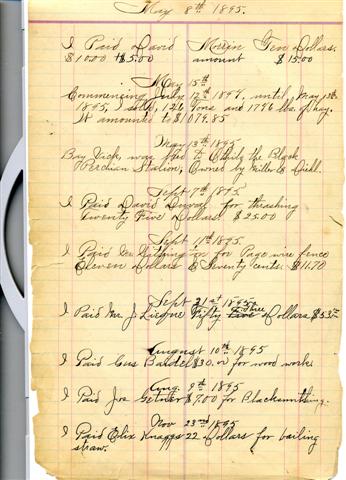 May 8th 1895.
I Paid David Morin Ten Dollars.
$10.00 + $5.00 amount $15.00
May 15th
Commencing July 12th 1894, until May 15th
1895, I sold, 126 Tons and 1796 lbs of hay.
It amounted to $1079.85
May 13th 1895
Bay Jack, was bred to Chily the Black
Perchun Stalion, Owned by Miller & Diehl.
Sept 7th 1895
I Paid David Duval for thrashing
Twenty Five Dollars $25.00
Sept 11th 1895.
I Paid Geo for Page wire fence
Eleven Dollars & Seventy cents. $11.70
Sept 21st 1895.
I Paid Mr. J. Fifty Three Dollars $53
August 10th 1895
I Paid Gus $30.00 for wood work
Aug. 9th 1895
I Paid Joe $7.00 for Blacksmithing.
Nov 23rd 1895
I Paid Elix Knaggs 22 Dollars for bailing
straw.